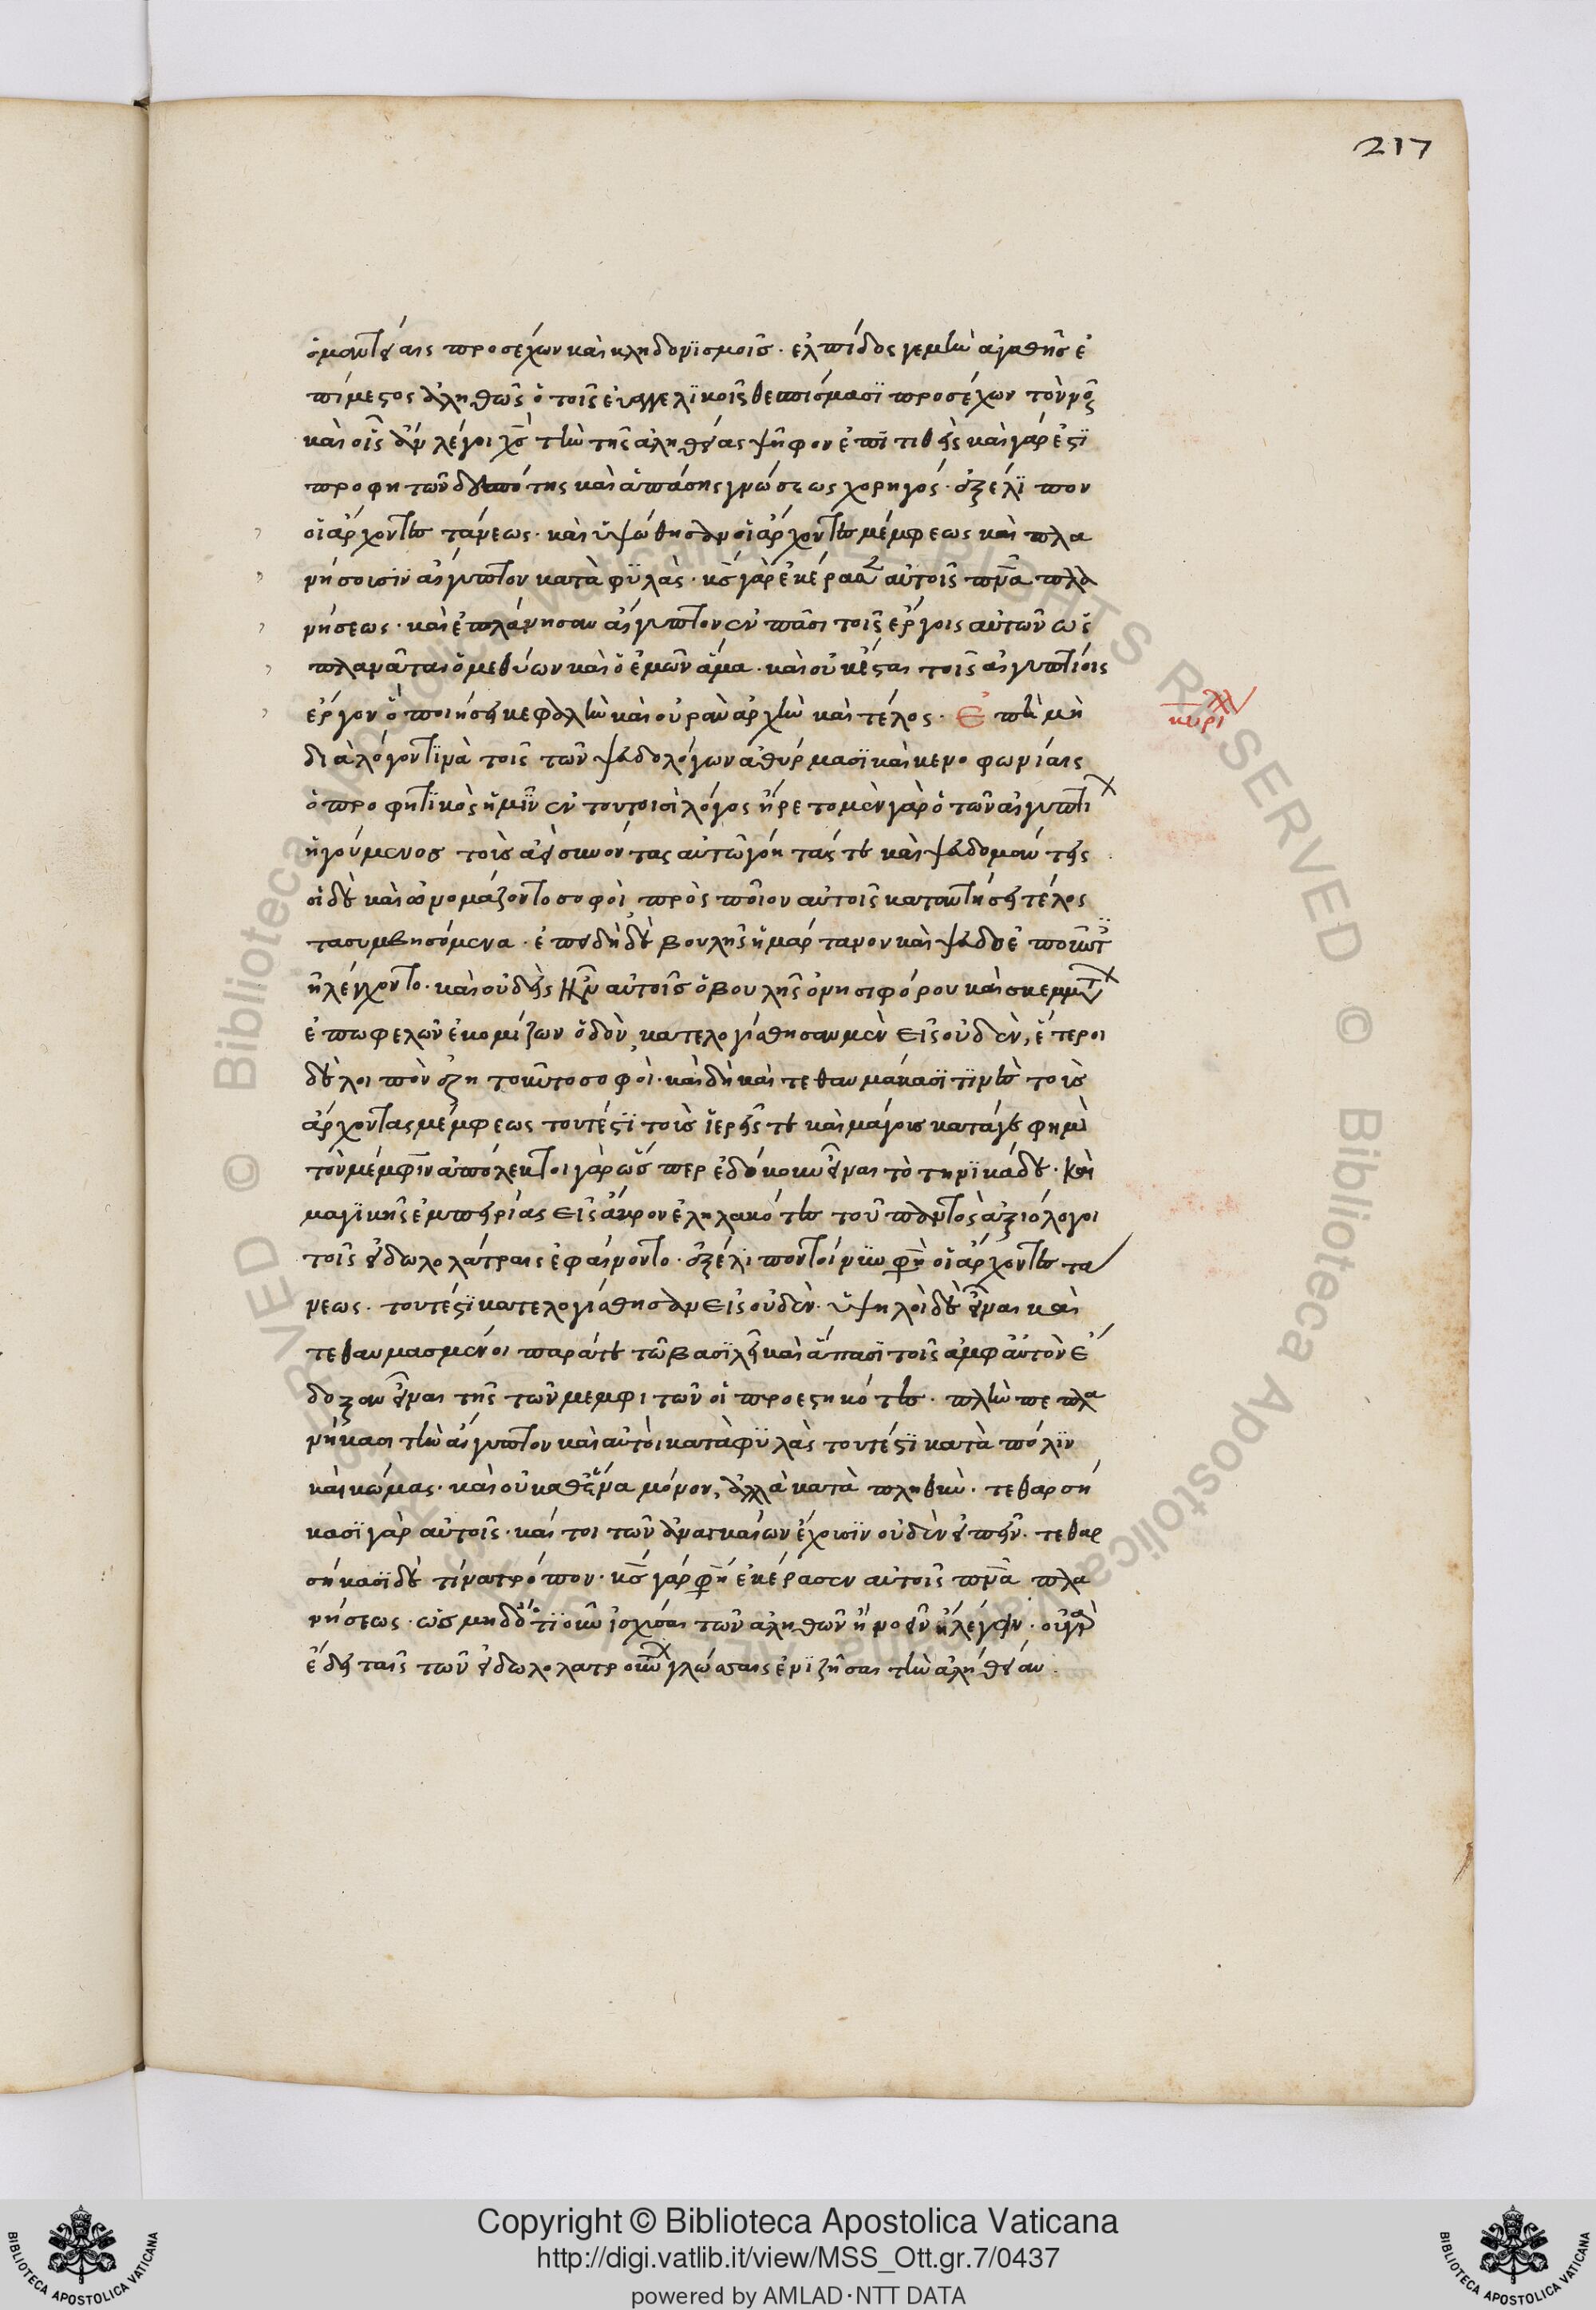 217
ὁ μαντείαις προσέχων καὶ κληδονισμοῖς. ἐλπίδος γεμὴν ἀγαθῆς ἐ
πίμεστος ἀληθῶς ὁ τοῖς εὐαγγελικοῖς θεσπίσμασι προσέχων τὸν νοῦν
καὶ οἷς ἂν λέγοι χς τὴν τῆς ἀληθείας ψῆφον ἐπιτιθεὶς καὶ γάρ ἐστι
προφητῶν δεσπότης καὶ ἁπάσης γνώσεως χορηγός. ἐξέλιπον
οἱ ἄρχοντες τάνεως. καὶ ὑψώθησαν οἱ ἄρχοντες μέμφεως καὶ πλα
νήσουσιν αἴγυπτον κατὰ φυλάς. κς γὰρ ἐκέρασε αὐτοῖς πνα πλα
νήσεως. καὶ ἐπλάνησαν αἴγυπτον ἐν πᾶσι τοῖς ἔργοις αὐτῶν ὡς
πλανᾶται ὁ μεθύων καὶ ὁ ἐμῶν ἅμα. καὶ οὐκ ἔσται τοῖς αἰγυπτίοις
ἔργον ὃ ποιήσει κεφαλὴν καὶ οὐρὰν ἀρχὴν καὶ τέλος. Ἐ
κυρι
ὁ προφητικὸς ἡμῖν ἐν τουτοισὶ λόγος ἤρετο μὲν γὰρ ὁ τῶν αἰγυπτί
ἡγούμενος τοὺς ἀεὶ συνόντας αὐτῶ γόητάς τε καὶ ψευδομάντεις
οἱ δὲ καὶ ὠνομάζοντο σοφοὶ πρὸς ποῖον αὐτοῖς καταντήσει τέλος
τὰ συμβησόμενα. ἐπειδὴ δὲ βουλῆς ἡμάρτανον καὶ ψευδο
ἠλέγχοντο. καὶ οὐδεὶς ἦν αὐτοῖς ὁ βουλῆς ὀνησιφόρου καὶ σκεμμ
ἐπωφελῶν ἐκομίζων ὁδὸν, κατελογίσθησαν μὲν εἰς οὐδὲν, ἕτεροι
δὲ λοιπὸν
ἄρχοντας μέμφεως τουτέστι τοὺς ἱερεῖς τε καὶ μάγους κατά γε φημὶ
τὴν μέμφιν ἀπόλεκτοι γὰρ ὥσπερ ἐδόκουν εἶναι τὸ τηνικάδε. καὶ
μαγικῆς ἐμπειρίας εἰς ἄκρον ἐληλακότες τοῦ παντὸς ἀξιόλογοι
τοῖς εἰδωλολάτραις ἐφαίνοντο. ἐξέλιπον τοίνυν φη οἱ ἄρχοντες τά
νεως. τουτέστι κατελογίσθησαν εἰς οὐδὲν. ὑψηλοὶ δὲ εἶναι καὶ
τεθαυμασμένοι παρά τε τῶ βασιλεῖ καὶ ἅπασι τοῖς ἀμφ' αὐτὸν ἔ
δοξαν εἶναι τῆς τῶν μεμφιτῶν οἱ προεστηκότες. πλὴν πεπλα
νήκασι τὴν αἴγυπτον καὶ αὐτοὶ κατὰ φυλὰς τουτέστι κατὰ πόλιν
καὶ κώμας. καὶ οὐ καθ' ἕνα μόνον, ἀλλὰ κατὰ πληθὺν. τεθαρσή
κασι γὰρ αὐτοῖς. καί τοι τῶν ἀναγκαίων ἔχουσιν οὐδὲν εἰπεῖν. τεθαρ
σήκασι δὲ τίνα τρόπον. κς γάρ φη ἐκέρασεν αὐτοῖς πνα πλα
νήσεως. ὡς μηδ' ὁτιοῦν ἰσχῦσαι τῶν ἀληθῶν ἢ νοεῖν ἢ λέγειν. οὐ γὰρ
ἔδει ταῖς τῶν εἰδωλολατρούντων γλώσσαις ἐνιζῆσαι τὴν ἀλήθειαν.
Copyright © Biblioteca Apostolica Vaticana
http://digi.vatlib.it/view/MSS_Ott.gr.7/0437
powered by AMLAD·NTT DATA
BIBLIOTECA APOSTOLICA VATICANA
BIBLIOTECA APOSTOLICA VATICANA